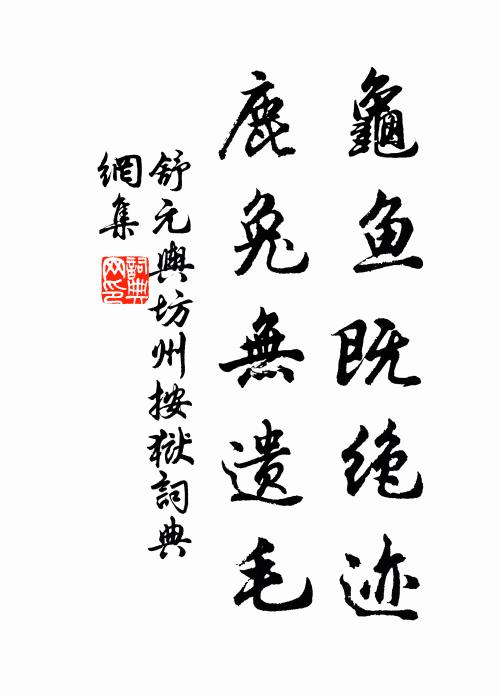 龜鱼既绝迹
鹿兔無遗毛
舒元輿坊州按獄詞典
網集
詞典網印